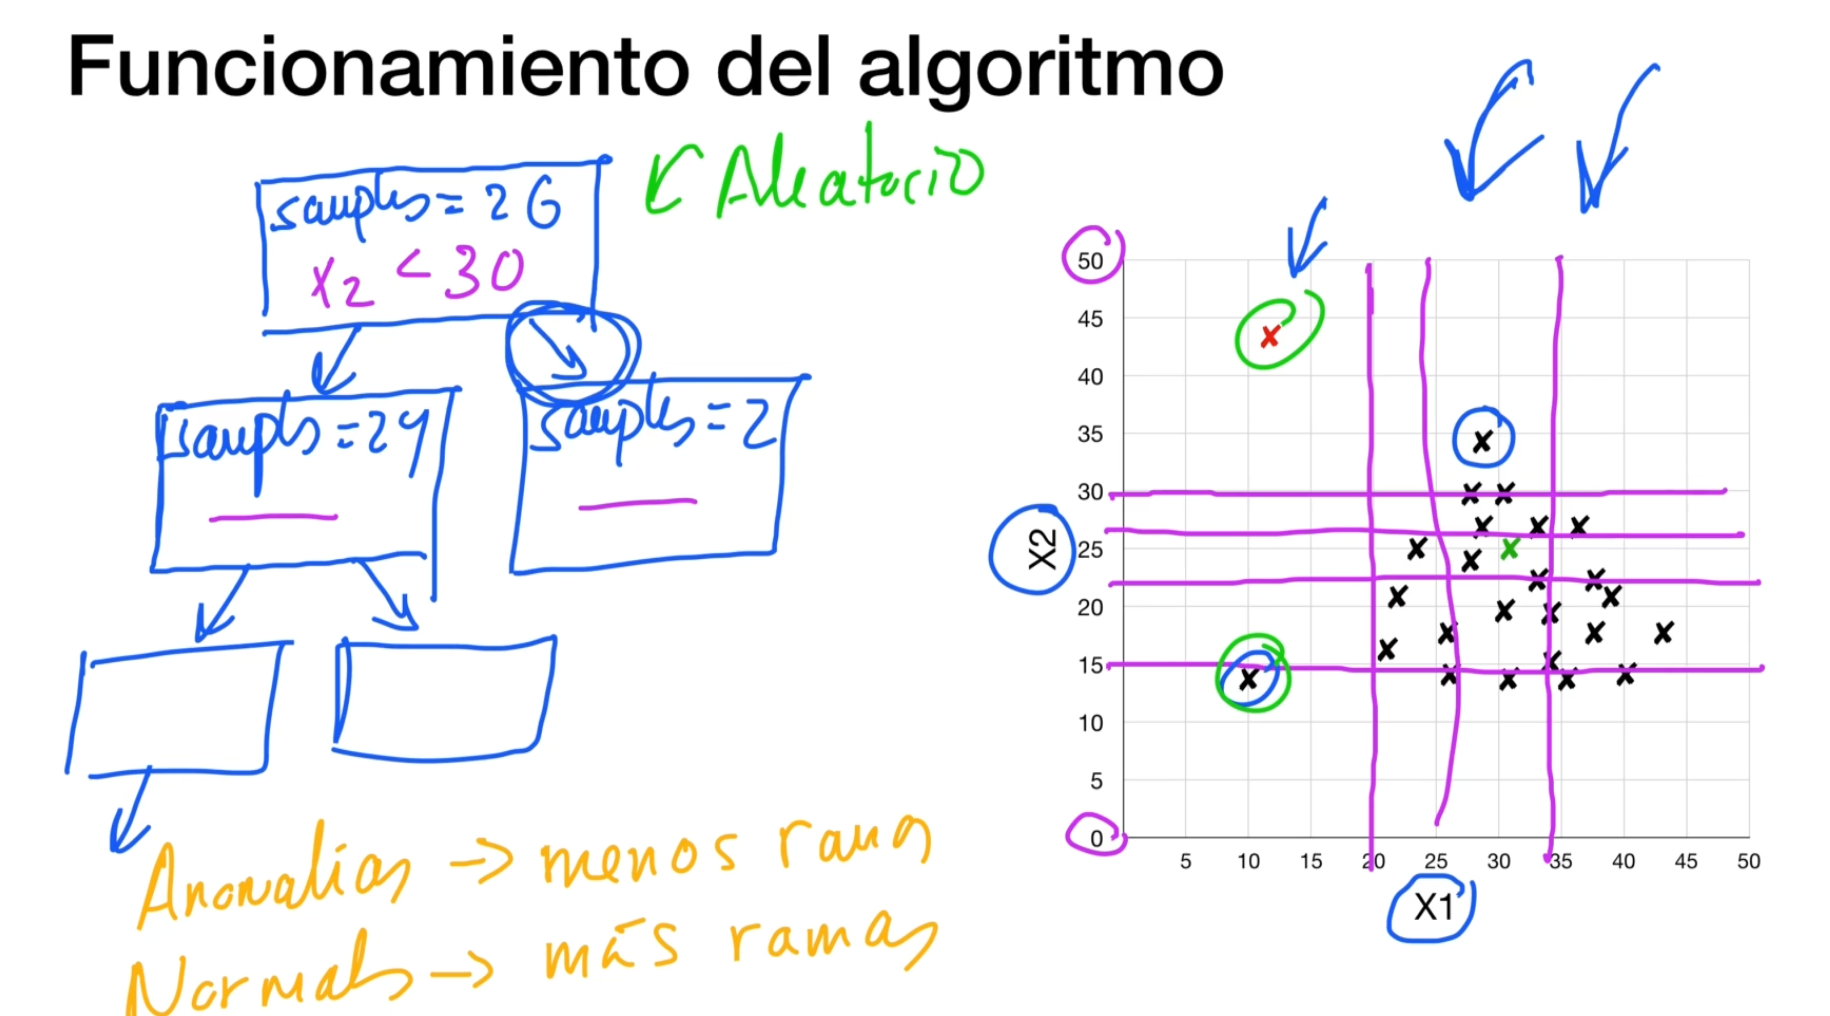 Funcionamiento del algoritmo
Aleatorio
samples = 26
x2 < 30
samples = 24
samples = 2
Anomalias → menos ramas
Normales → más ramas
50
45
40
35
30
25
20
15
10
5
0
X2
5 10 15 20 25 30 35 40 45 50
X1